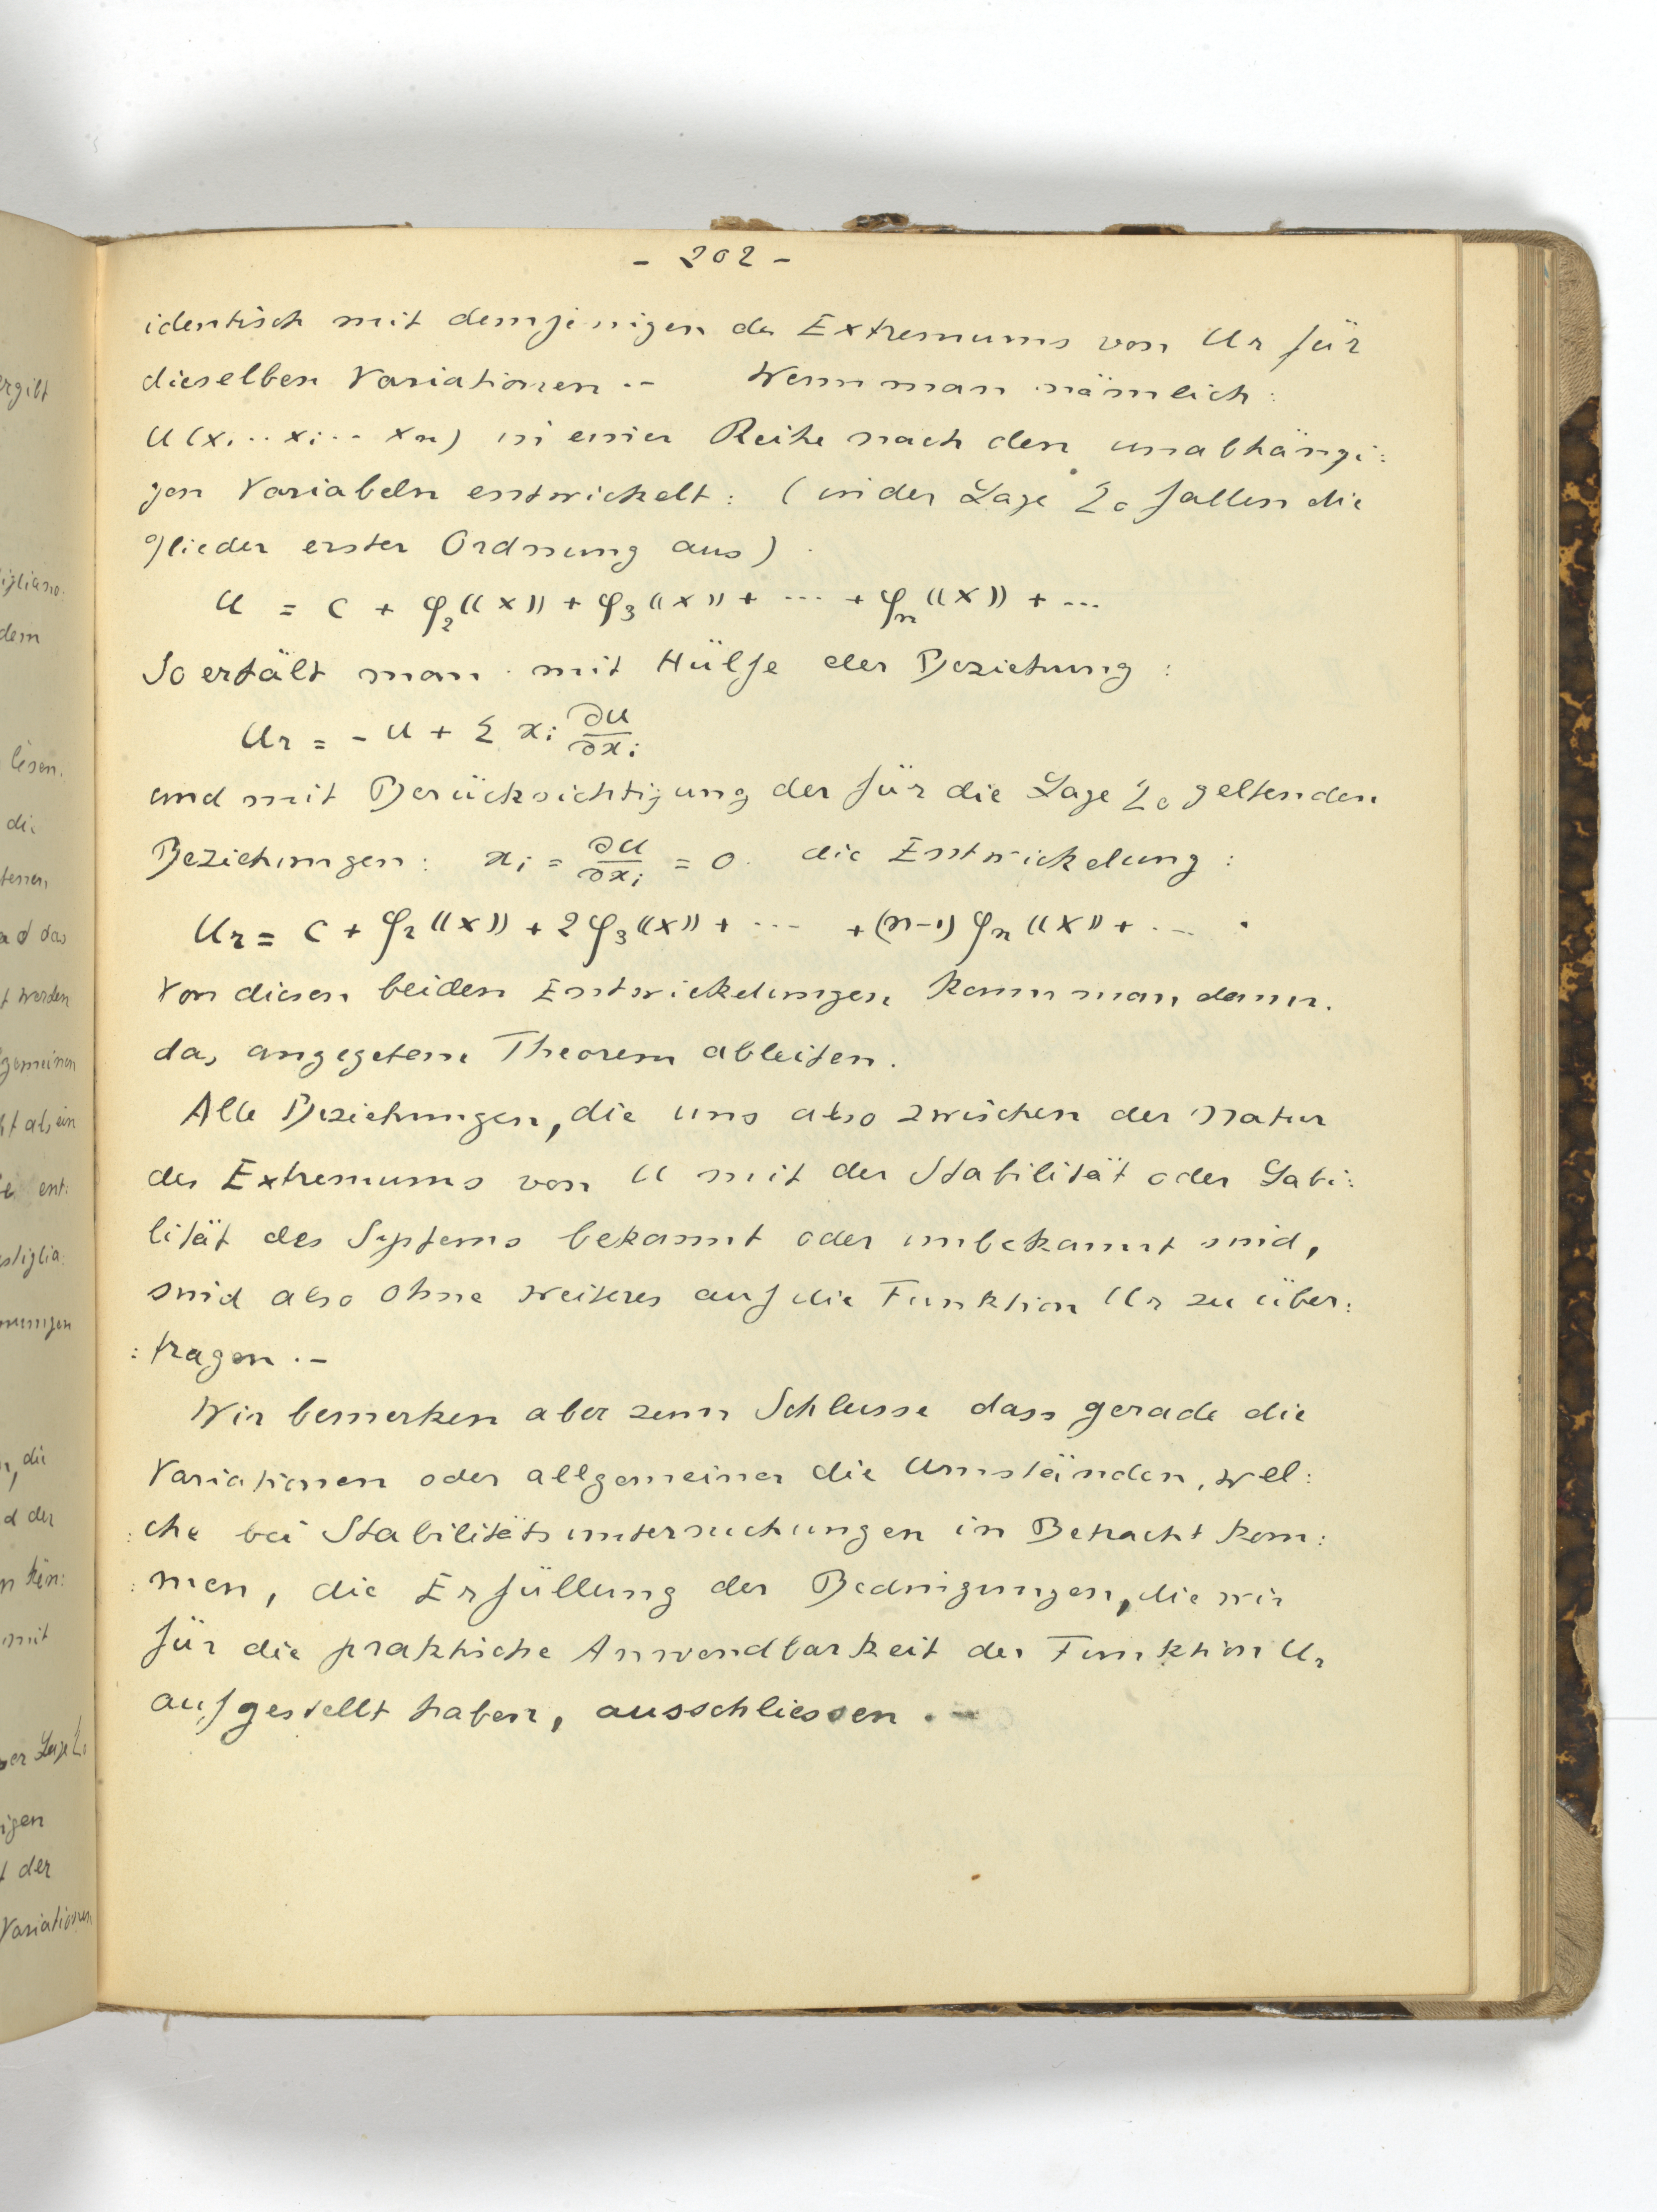 - 202 -
identisch mit demjenigen des Extremums von Ur für
dieselben Variationen .- Wenn man nämlich :
U(x, ... xi ... xn) in einer Reihe nach den unabhängi:
gen Variabeln entwickelt : (in der Lage Σ₀ fallen die
glieder erster Ordnung aus)
U = C + φ₂((x)) + φ₃((x)) + ... + φn((x)) + ...
So erhält man mit Hülfe der Beziehung :
Ur = - U + Σ xi ∂U/∂xi
und mit Berücksichtigung der für die Lage Σ₀ geltenden
Beziehungen : xi = ∂U/∂xi = 0 . die Entwickelung :
Ur = C + φ₂((x)) + 2φ₃((x)) + ... + (n-1) φn((x)) + ... .
Von diesen beiden Entwickelungen kann man dann.
das angegebene Theorem ableiten.
Alle Beziehungen, die uns also zwischen der Natur
des Extremums von U mit der Stabilität oder Labi:
lität des Systems bekannt oder unbekannt sind,
sind also ohne weiteres auf die Funktion Ur zu über:
:tragen .-
Wir bemerken aber zum Schlusse dass gerade die
Variationen oder allgemeiner die Umständen, wel:
:che bei Stabilitätsuntersuchungen in Betracht kom:
:men, die Erfüllung der Bedingungen, die wir
für die praktische Anwendbarkeit der Funktion Ur
aufgestellt haben, ausschliessen . -
ergibt
igliano:
dem
lisen.
di
und das
t werden
gemeinen
ht als ein
ent:
stiglia:
nungen
n, die
d der
n kein:
mit
er Lage Σ₀
igen
t der
Variationen